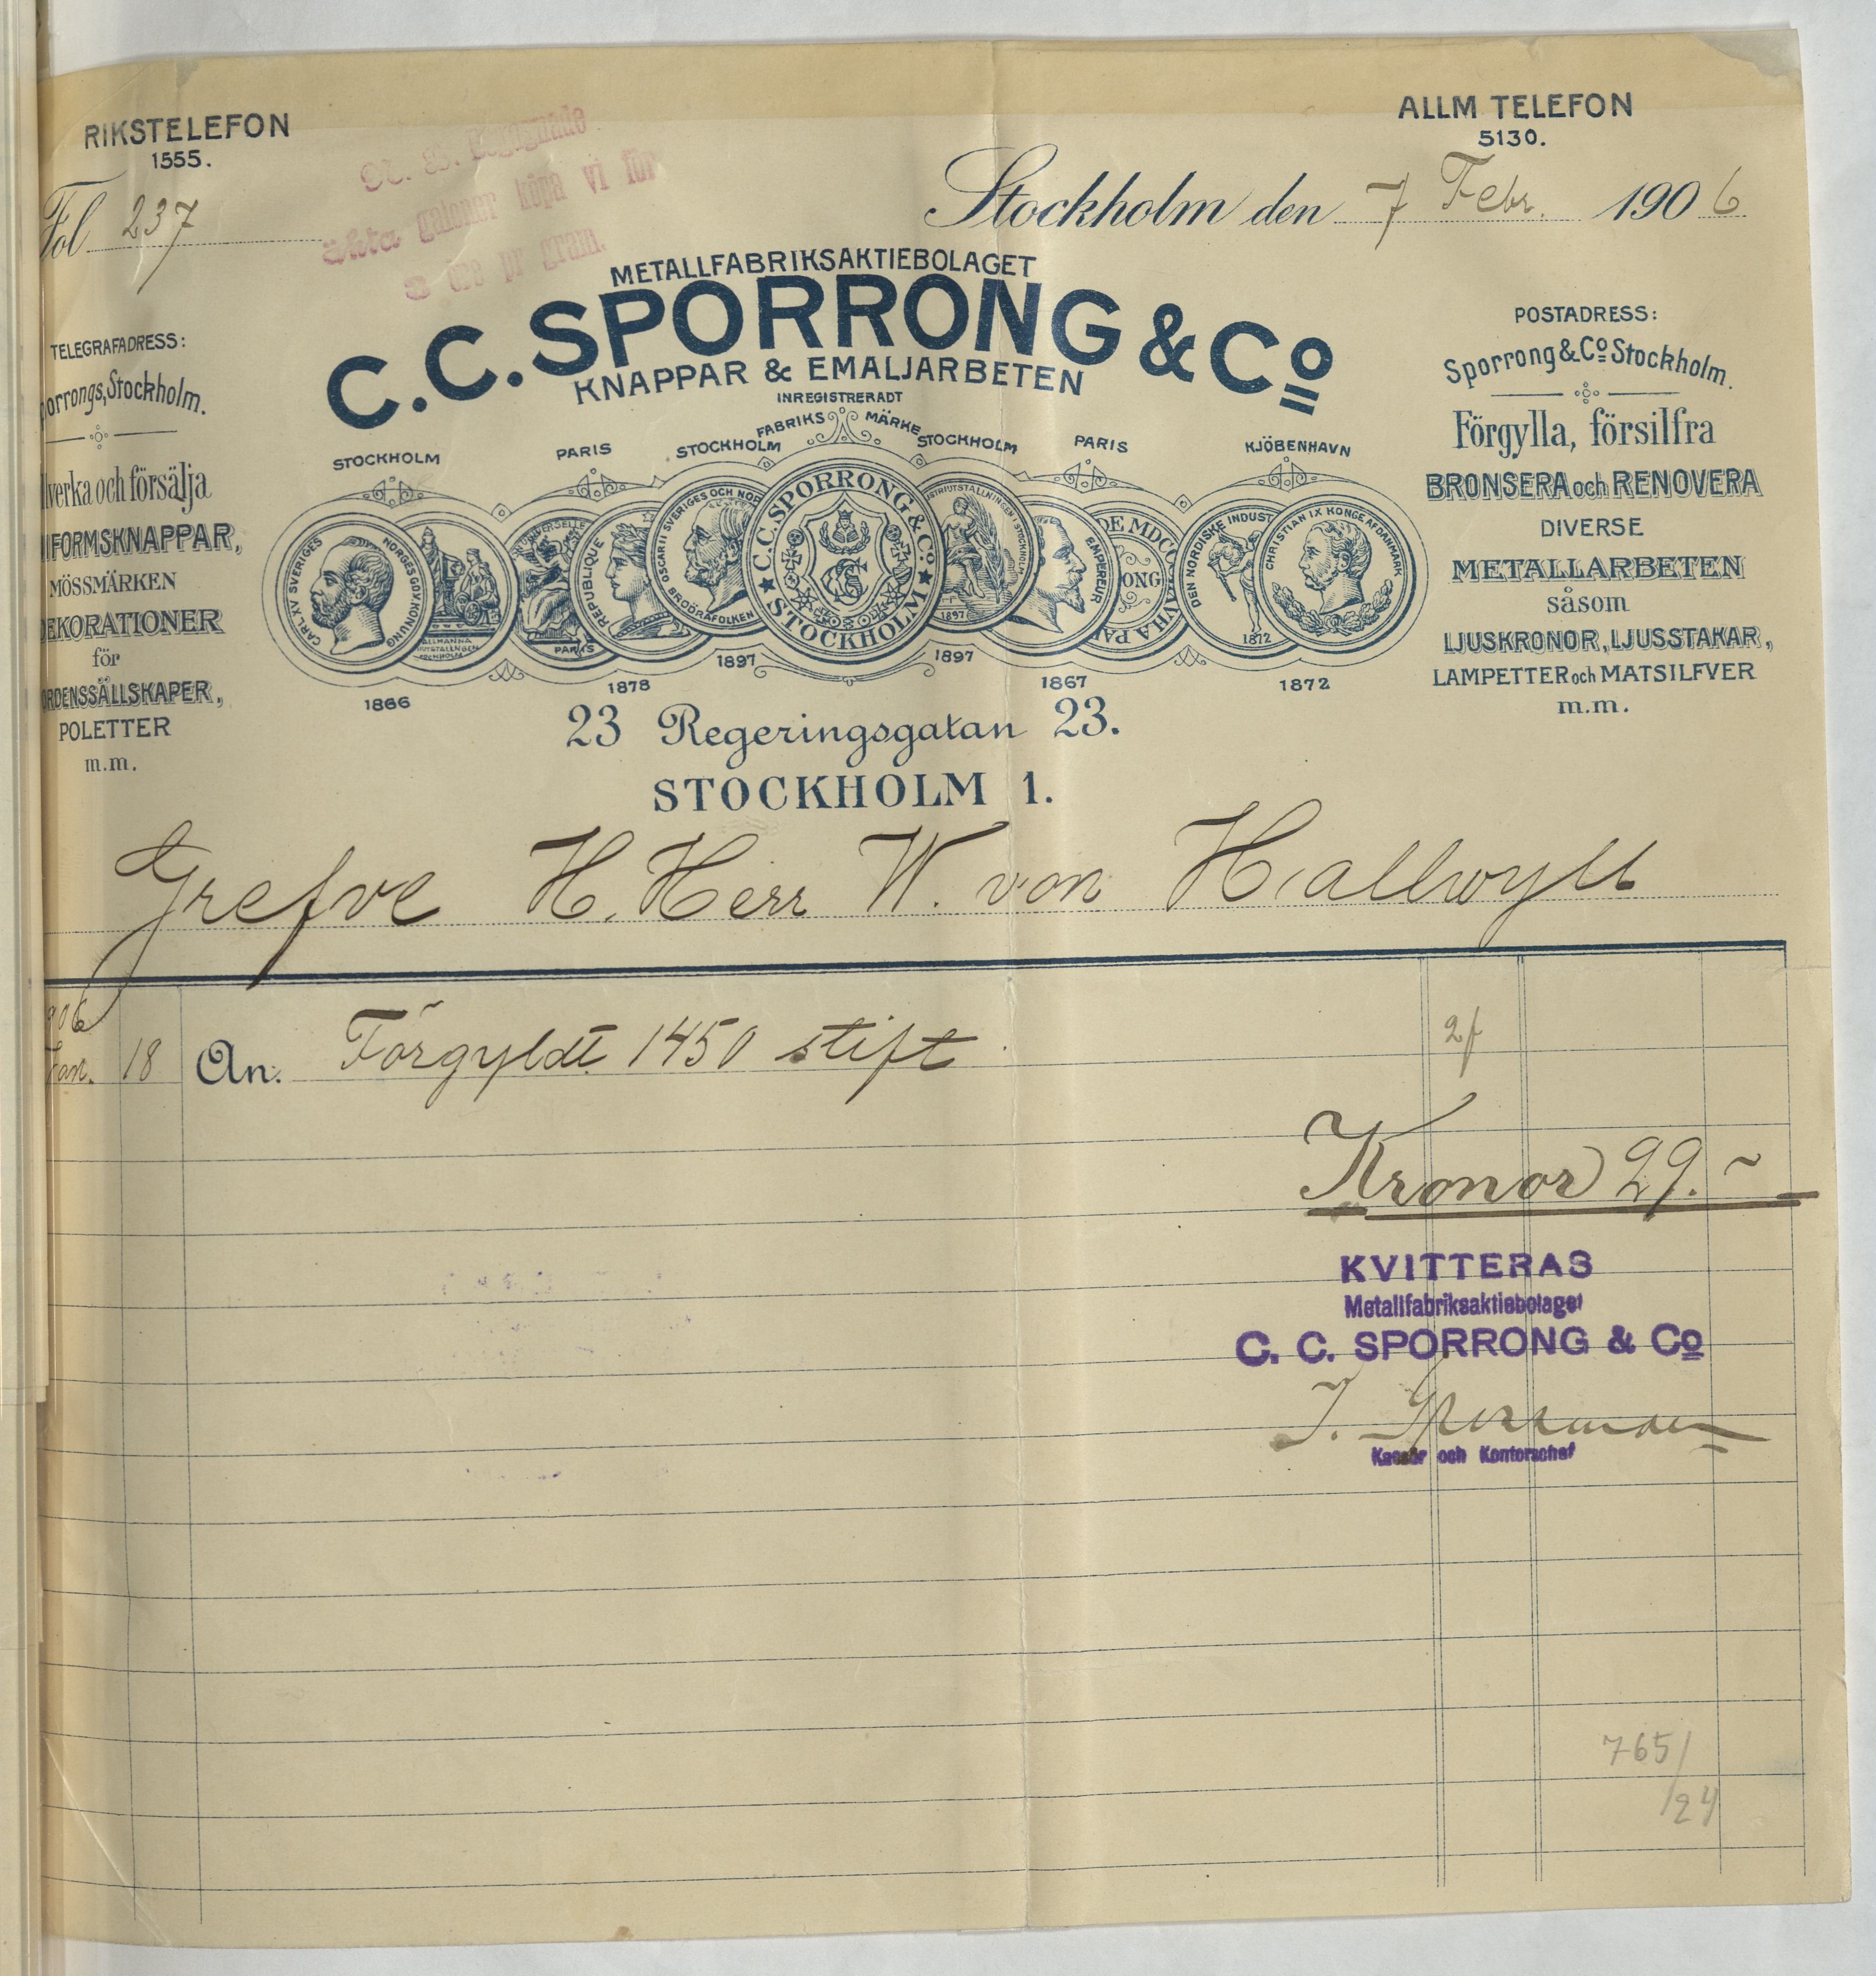 RIKSTELEFON
1555.
ALLM TELEFON
5130.
Fol 237
äkta galoner köpa vi för
öre pr gram.
Stockholm den 7 Febr. 1906
METALLFABRIKSAKTIEBOLAGET
C.C. SPORRONG & Co
KNAPPAR & EMALJARBETEN
INREGISTRERADT
FABRIKS MÄRKE
TELEGRAFADRESS:
porrongs, Stockholm.
lverka och försälja
IFORMSKNAPPAR,
MÖSSMÄRKEN
DEKORATIONER
för
ORDENSSÄLLSKAPER,
POLETTER
m.m.
POSTADRESS:
Sporrong & Co Stockholm.
Förgylla, försilfra
BRONSERA och RENOVERA
DIVERSE
METALLARBETEN
såsom
LJUSKRONOR, LJUSSTAKAR,
LAMPETTER och MATSILFVER
m.m.
STOCKHOLM PARIS STOCKHOLM STOCKHOLM PARIS KJÖBENHAVN
CARL XV SVERIGES NORGES GOT. KONUNG
PARIS
REPUBLIQUE
OSCAR II SVERIGES OCH NOR
BRODRAFOLKEN
C.C. SPORRONG & Co
STOCKHOLM
1897
EMPEREUR
ONG
DEN NORDISKE INDUST
1872
CHRISTIAN IX KONGE AF DANMARK
1866 1878 1897 1897 1867 1872
23 Regeringsgatan 23.
STOCKHOLM 1.
Grefve H. Herr W. von Hallwyll
906
Jan. 18 An. Förgyldt 1450 stift 2/
Kronor 29.~
KVITTERAS
Metallfabriksaktiebolaget
C. C. SPORRONG & Co
Kassör och Kontorschef
765/
/24